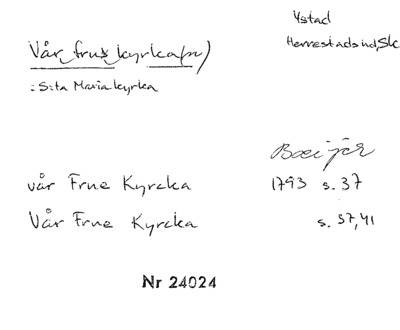 Ystad
Herrestads hd, Sk
Vår frus kyrka(n)
: S:ta Maria kyrka
Boeijer
vår Frue Kyrcka 1793 s. 37
Vår Frue Kyrcka s. 37, 41
Nr 24024